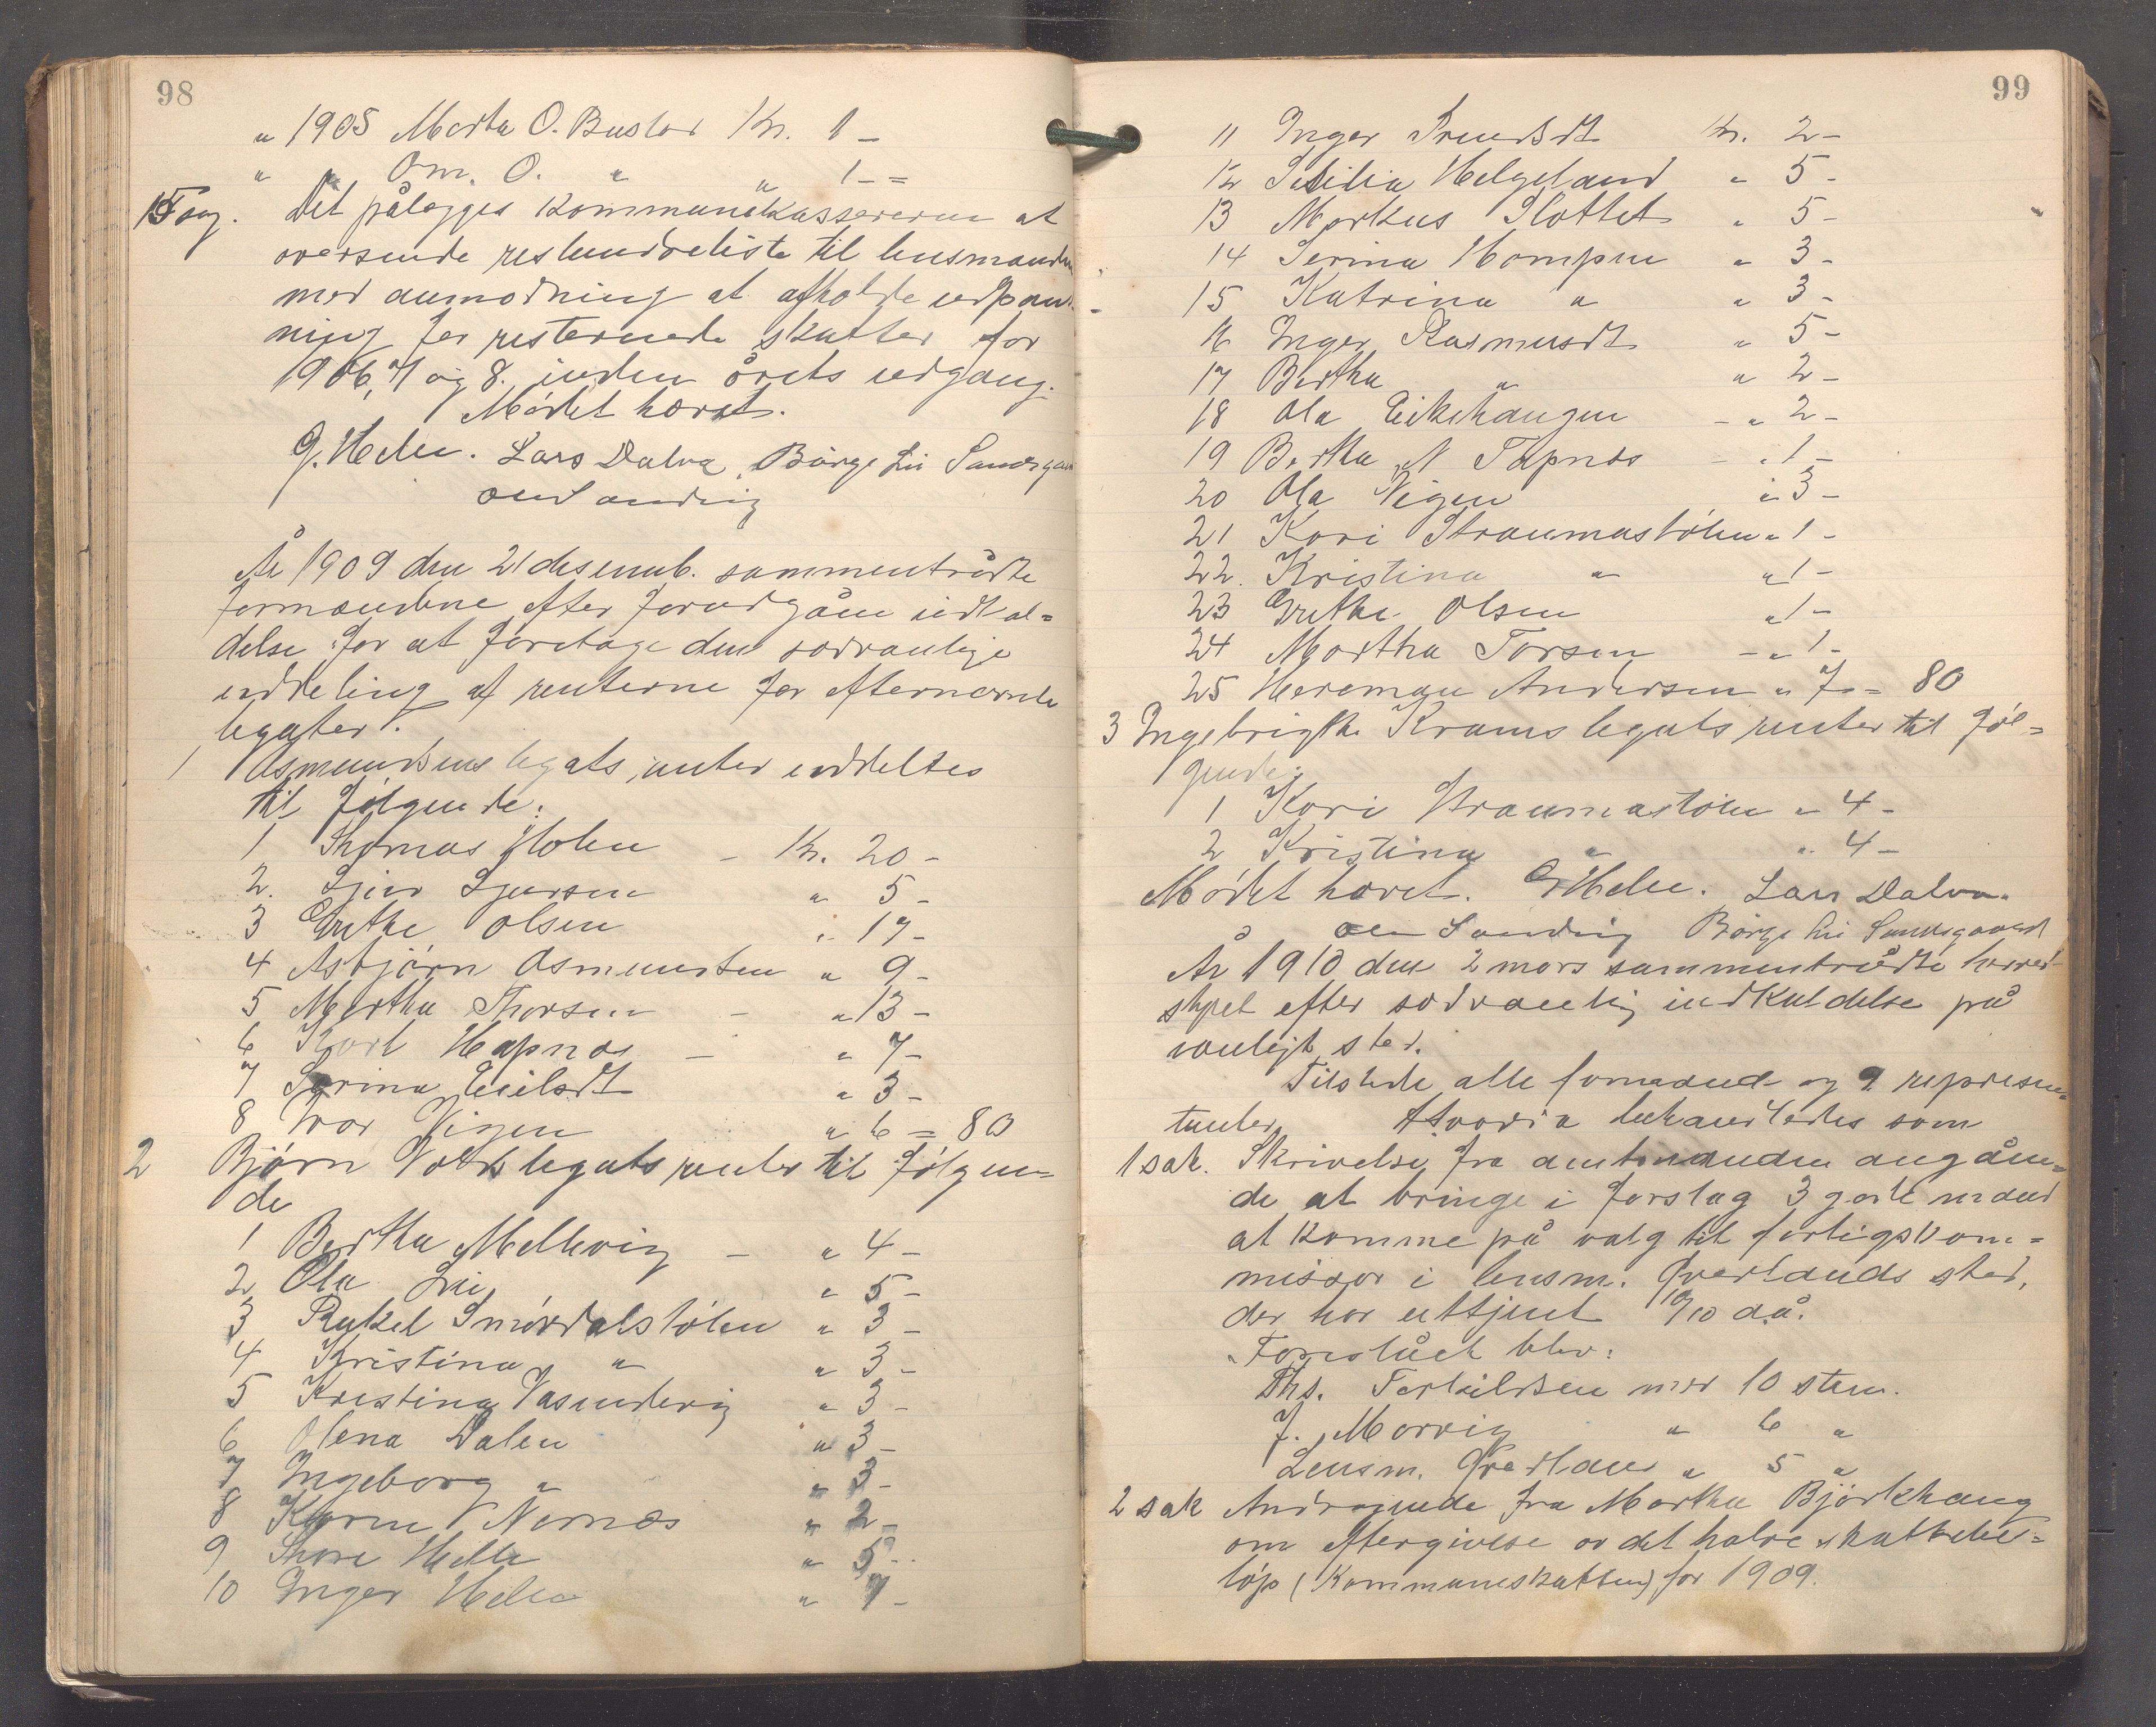 98
" 1905 Marta O. Buslar Kr. 1 -
" " Om. O. " " 1 - =
15 sag. Det pålægges kommunekassereren at
oversende restanceliste til lensmanden
med anmodning at afholde udpant-
ning for resterende skatter for
1906, 7 og 8. inden årets udgang.
Mødet hævet.
G. Helle. Lars Dalva. Børge Lie Sandsgaard
Om Sandvig
År 1909 den 21 desemb. sammentrådte
formændene efter forudgåen indkal=
delse for at foretage den sedvanlige
uddeling af renterne for efternævnte
legater.
1 Asmundsens legats renter uddeltes
til følgende:
1 Thomas Holen - Kr. 20 -
2. Sjur Sjursen " 5 -
3 Grethe Olsen " 17 -
4 Asbjørn Osmundsen " 9 -
5 Martha Thorsen - " 13 -
6 Karl Hapnes - " 7 -
7 Serina Eeilsdt " 3 -
8 Ivar Vigen " 6 = 80
2 Bjørn legats renter til følgen=
de
1 Bertha Mellevig - " 4 -
2 Ola Lie " 5 -
3 Rakel Smørdalstølen " 3 -
4 Kristina " " 3 -
5 Kristina Vasendevig " 3 -
6 Olena Dalen " 3 -
7 Ingeborg " " 3 -
8 Karen Nernæs " 2 -
9 Thore Helle " 5 -
10 Inger Helle " 7 -
99
11 Inger Knudsdt Kr. 2 -
12 Selilia Helgeland " 5 -
13 Markus Slottet " 5 -
14 Serina Hompen " 3 -
15 Katrina " " 3 -
16 Inger Rasmusdt " 5 -
17 Bertha " " 2 -
18 Ola Eikehaugen - " 2 -
19 Bertha N Tapnes - " 1 -
20 Ola Vigen " 3 -
21 Kari Straumastølen " 1 -
22. Kristina " " 1 -
23 Grethe Olsen " 1 -
24 Martha Torsen - " 1 -
25 Herman Andersen " 7 = 80
3 Ingebrigtha Krams legats renter til føl=
gende.
1 Kari Straumastølen " 4 -
2 Kristina " " 4 -
Mødet hævet. G Helle. Lars Dalva.
Om Sandvig Børge Lie Sandsgaard
År 1910 den 2 mars sammentrådte herred-
styret efter sedvanlig indkaldelse på
vanligt sted.
Tilstede alle formænd og 9 represen=
tanter. Hvorda behandledes som
1 sak. Skrivelse fra amtmanden angåen=
de at bringe i forslag 3 gode mænd
at komme på valg til forligskom=
missær i lensm. Qverlands sted,
der har uttjent 10/10 då.
Foreslået blev:
Ths. Torkildsen med 10 stem.
J. Marvig " 6 "
Lensm. Qverland " 5 "
2 sak Andragende fra Martha Bjørkhaug
om eftergivelse av det halve skattebe=
løp (Kommuneskatten) for 1909.